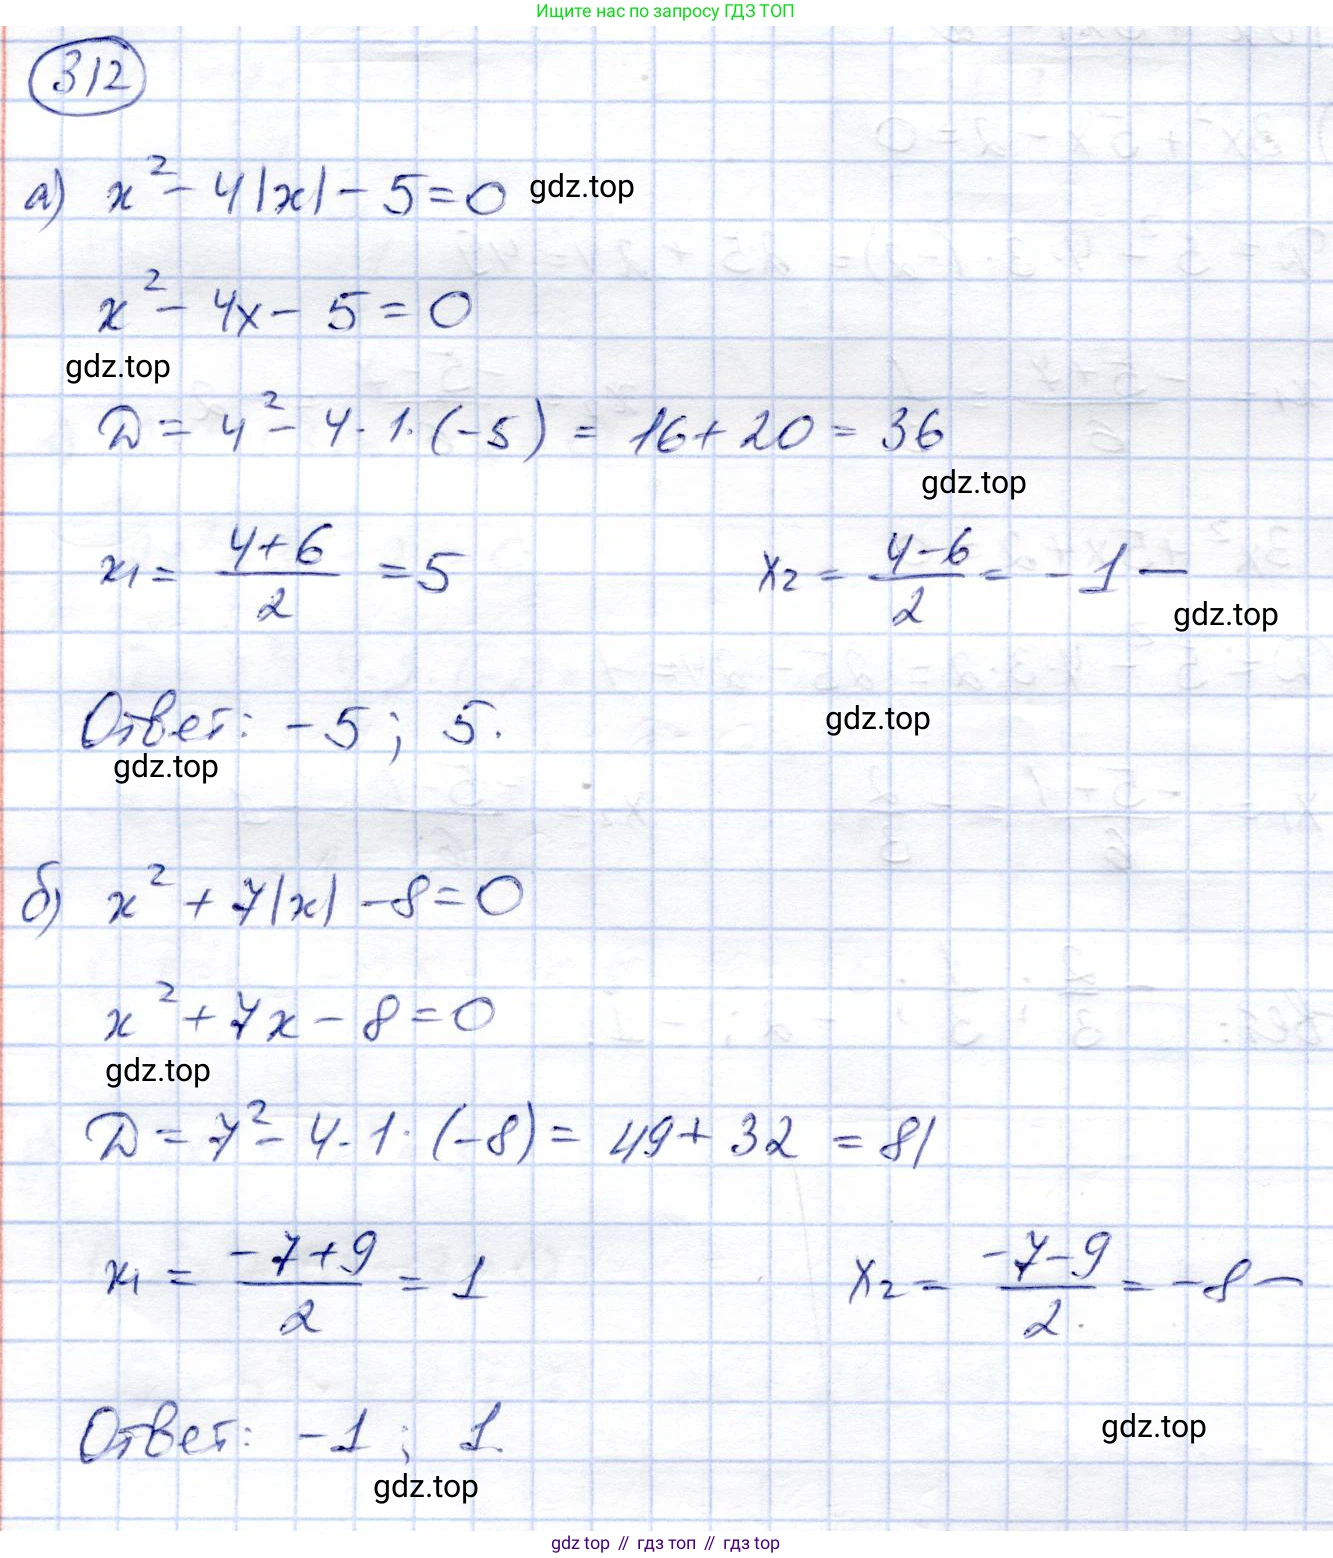 Ищите нас по запросу ГДЗ ТОП
312
а) x² - 4|x| - 5 = 0 gdz.top
x² - 4x - 5 = 0
gdz.top
D = 4² - 4 · 1 · (-5) = 16 + 20 = 36
gdz.top
x₁ = (4+6)/2 = 5 x₂ = (4-6)/2 = -1 —
gdz.top
Ответ: -5; 5. gdz.top
gdz.top
б) x² + 7|x| - 8 = 0
x² + 7x - 8 = 0
gdz.top
D = 7² - 4 · 1 · (-8) = 49 + 32 = 81
x₁ = (-7+9)/2 = 1 x₂ = (-7-9)/2 = -8 —
Ответ: -1; 1. gdz.top
gdz.top
gdz top // гдз топ // гдз top